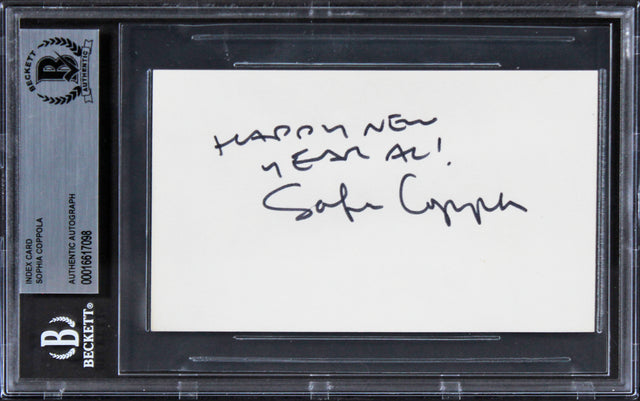 HAPPY NEW
YEAR AL!
Sofia Coppola
BECKETT
AUTHENTIC
INDEX CARD
SOPHIA COPPOLA
AUTHENTIC AUTOGRAPH
00016617098
BECKETT®